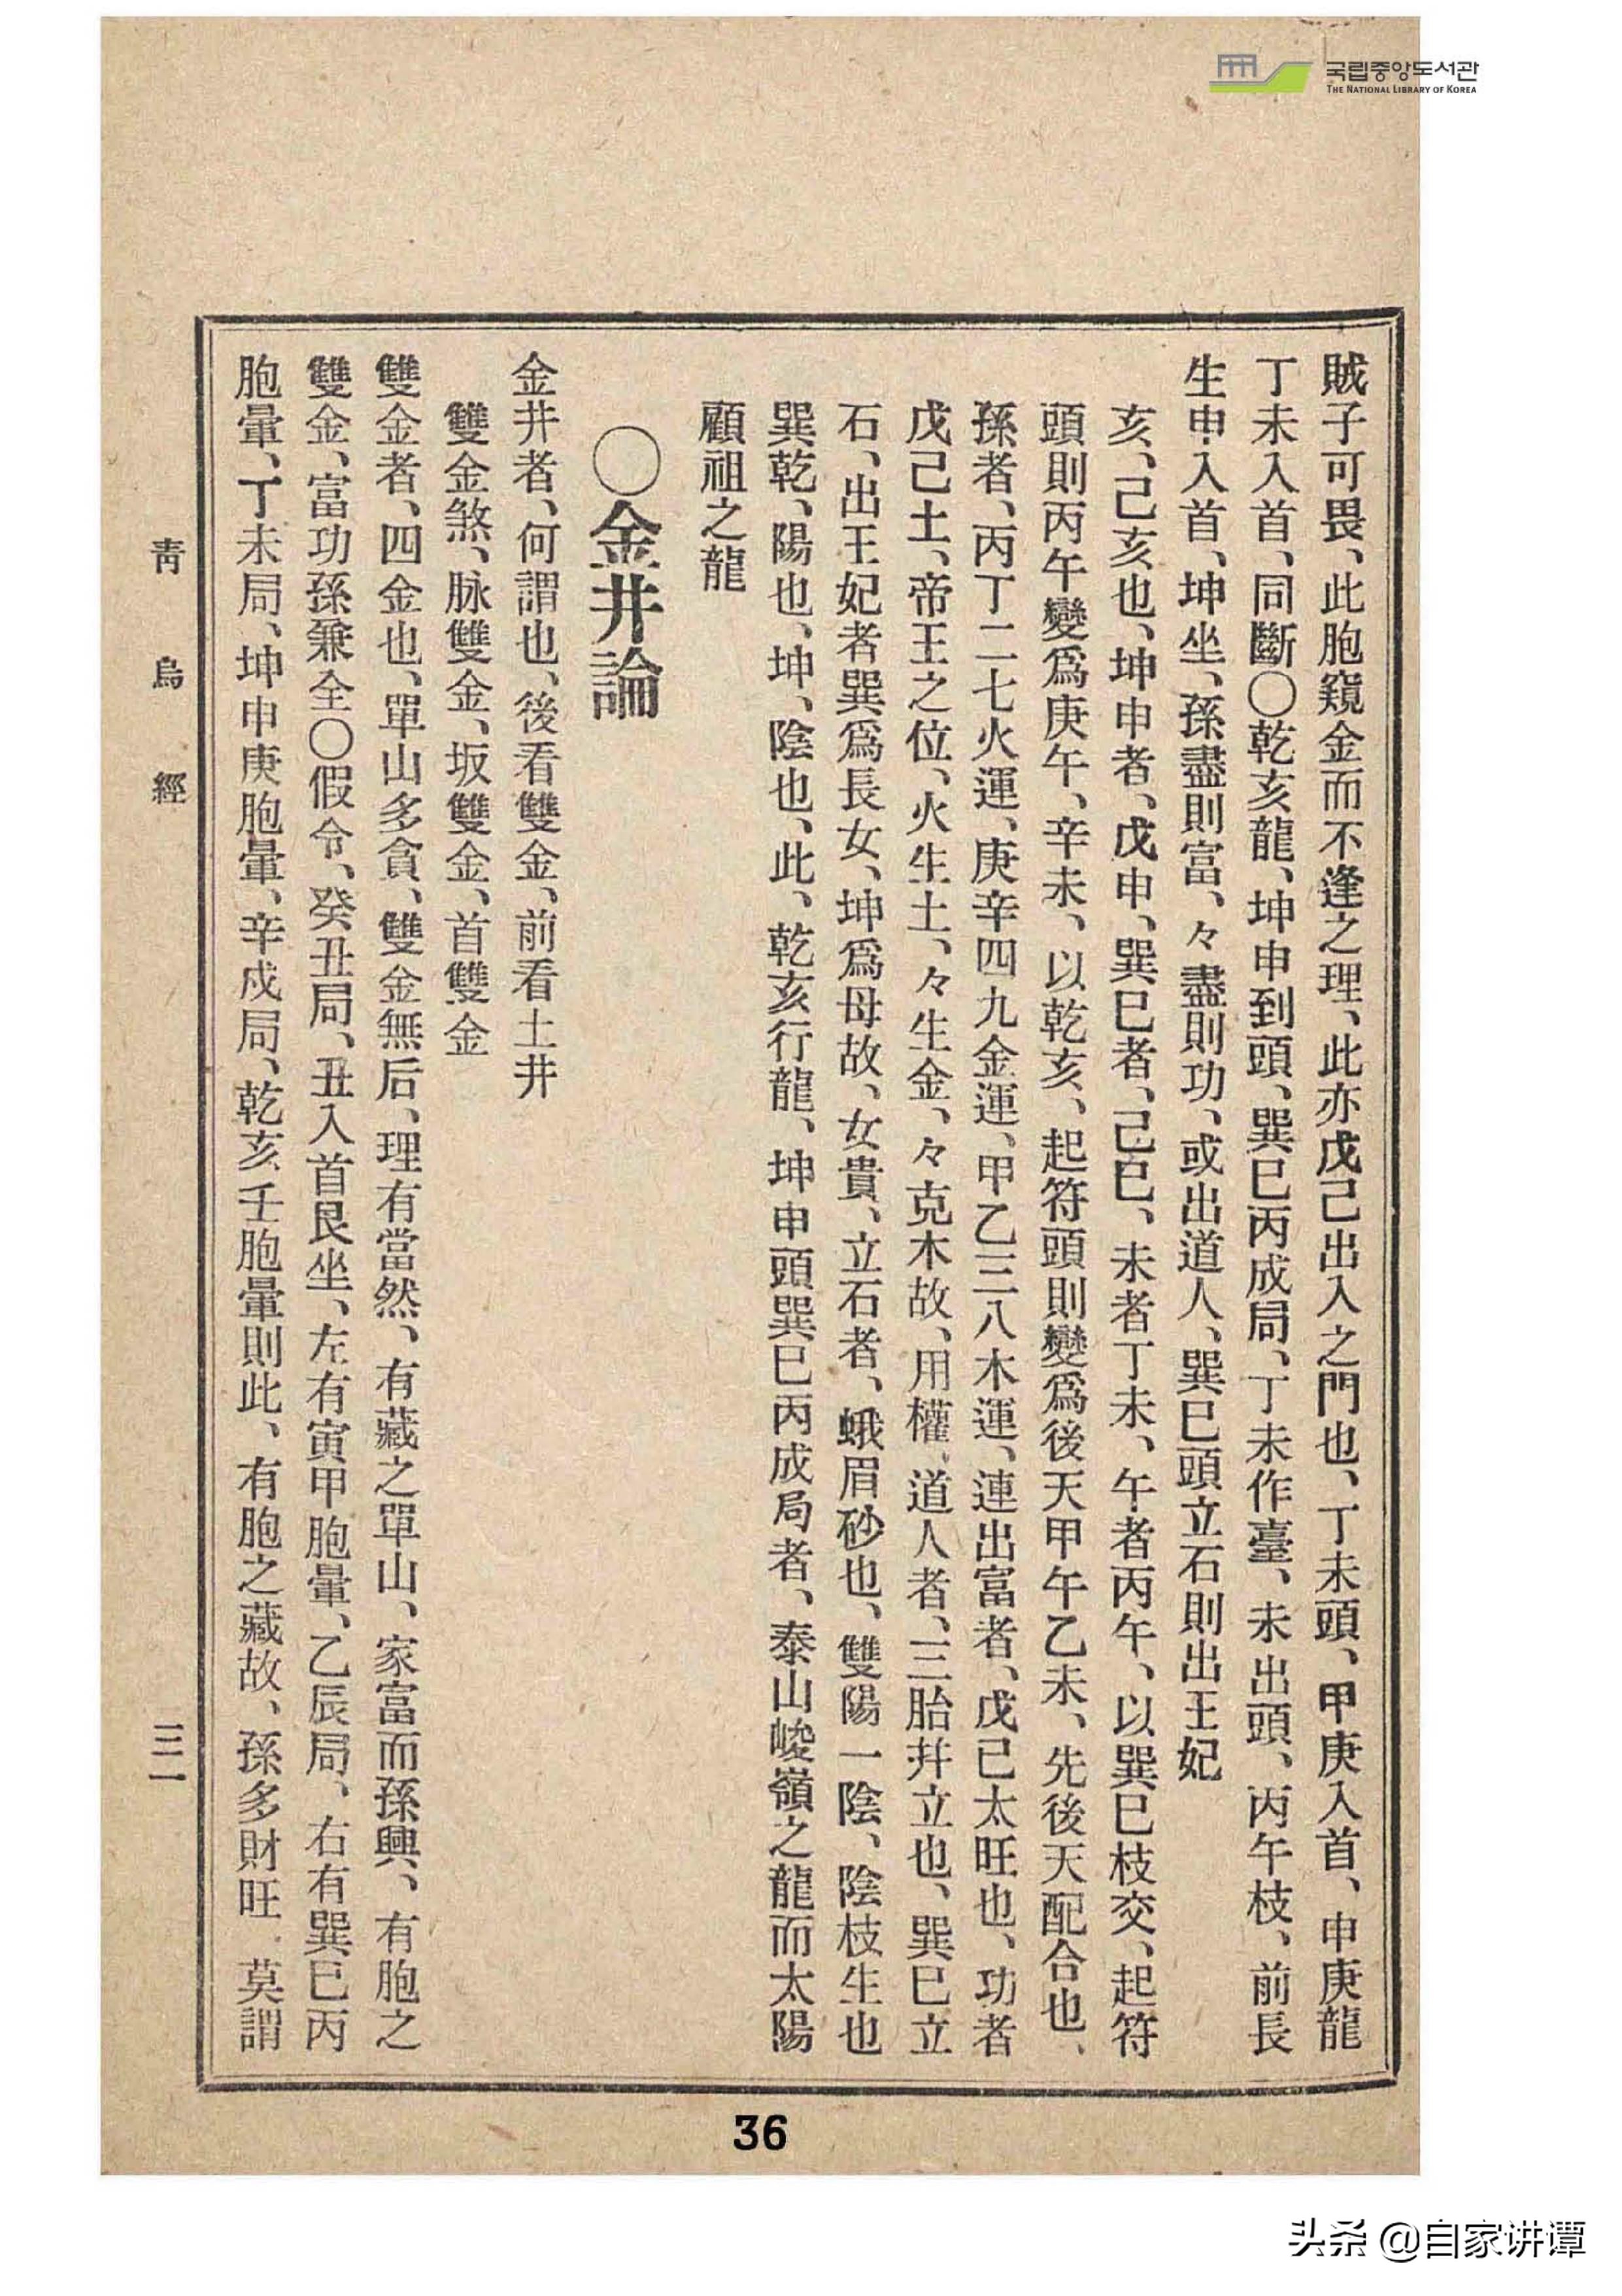 국립중앙도서관
THE NATIONAL LIBRARY OF KOREA
賊子可畏、此胞窺金而不逢之理、此亦戊己出入之門也、丁未頭、甲庚入首、申庚龍
丁未入首、同斷〇乾亥龍、坤申到頭、巽巳丙成局、丁未作臺、未出頭、丙午枝、前長
生申入首、坤坐、孫盡則富、々盡則功、或出道人、巽巳頭立石則出王妃
亥、己亥也、坤申者、戊申、巽巳者、己巳、未者丁未、午者丙午、以巽巳枝交、起符
頭則丙午變爲庚午、辛未、以乾亥、起符頭則變爲後天甲午乙未、先後天配合也、
孫者、丙丁二七火運、庚辛四九金運、甲乙三八木運、連出富者、戊己太旺也、功者
戊己土、帝王之位、火生土、々生金、々克木故、用權、道人者、三胎幷立也、巽巳立
石、出王妃者巽爲長女、坤爲母故、女貴、立石者、蛾眉砂也、雙陽一陰、陰枝生也
巽乾、陽也、坤、陰也、此、乾亥行龍、坤申頭巽巳丙成局者、泰山峻嶺之龍而太陽
顧祖之龍
〇金井論
金井者、何謂也、後看雙金、前看土井
雙金煞、脉雙金、坂雙金、首雙金
雙金者、四金也、單山多貪、雙金無后、理有當然、有藏之單山、家富而孫興、有胞之
雙金、富功孫兼全〇假令、癸丑局、丑入首艮坐、左有寅甲胞暈、乙辰局、右有巽巳丙
胞暈、丁未局、坤申庚胞暈、辛戍局、乾亥壬胞暈則此、有胞之藏故、孫多財旺、莫謂
靑烏經
三一
36
头条 @自家讲谭